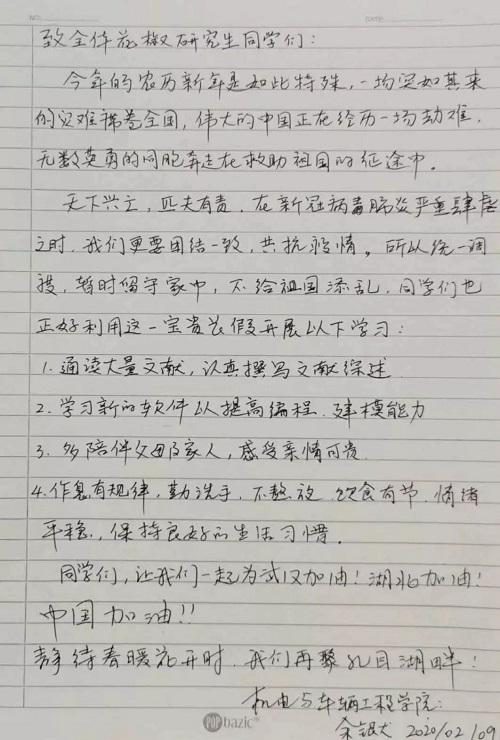 NO. DATE
致全体花椒研究生同学们：
今年的农历新年是如此特殊，一场突如其来
的灾难席卷全国，伟大的中国正在经历一场劫难，
无数英勇的同胞奔走在救助祖国的征途中。
天下兴亡，匹夫有责，在新冠病毒肺炎严重肆虐
之时，我们更要团结一致，共抗疫情。所以统一调
拨，暂时留守家中，不给祖国添乱，同学们也
正好利用这一宝贵长假开展以下学习：
1. 通读大量文献，认真撰写文献综述
2. 学习新的软件以提高编程、建模能力
3. 多陪伴父母及家人，感受亲情可贵
4. 作息有规律，勤洗手，不熬夜，饮食有节，情绪
平稳，保持良好的生活习惯。
同学们，让我们一起为武汉加油！湖北加油！
中国加油！！
静待春暖花开时，我们再聚孔目湖畔！
机电与车辆工程学院：
2020/02/09
POP bazic